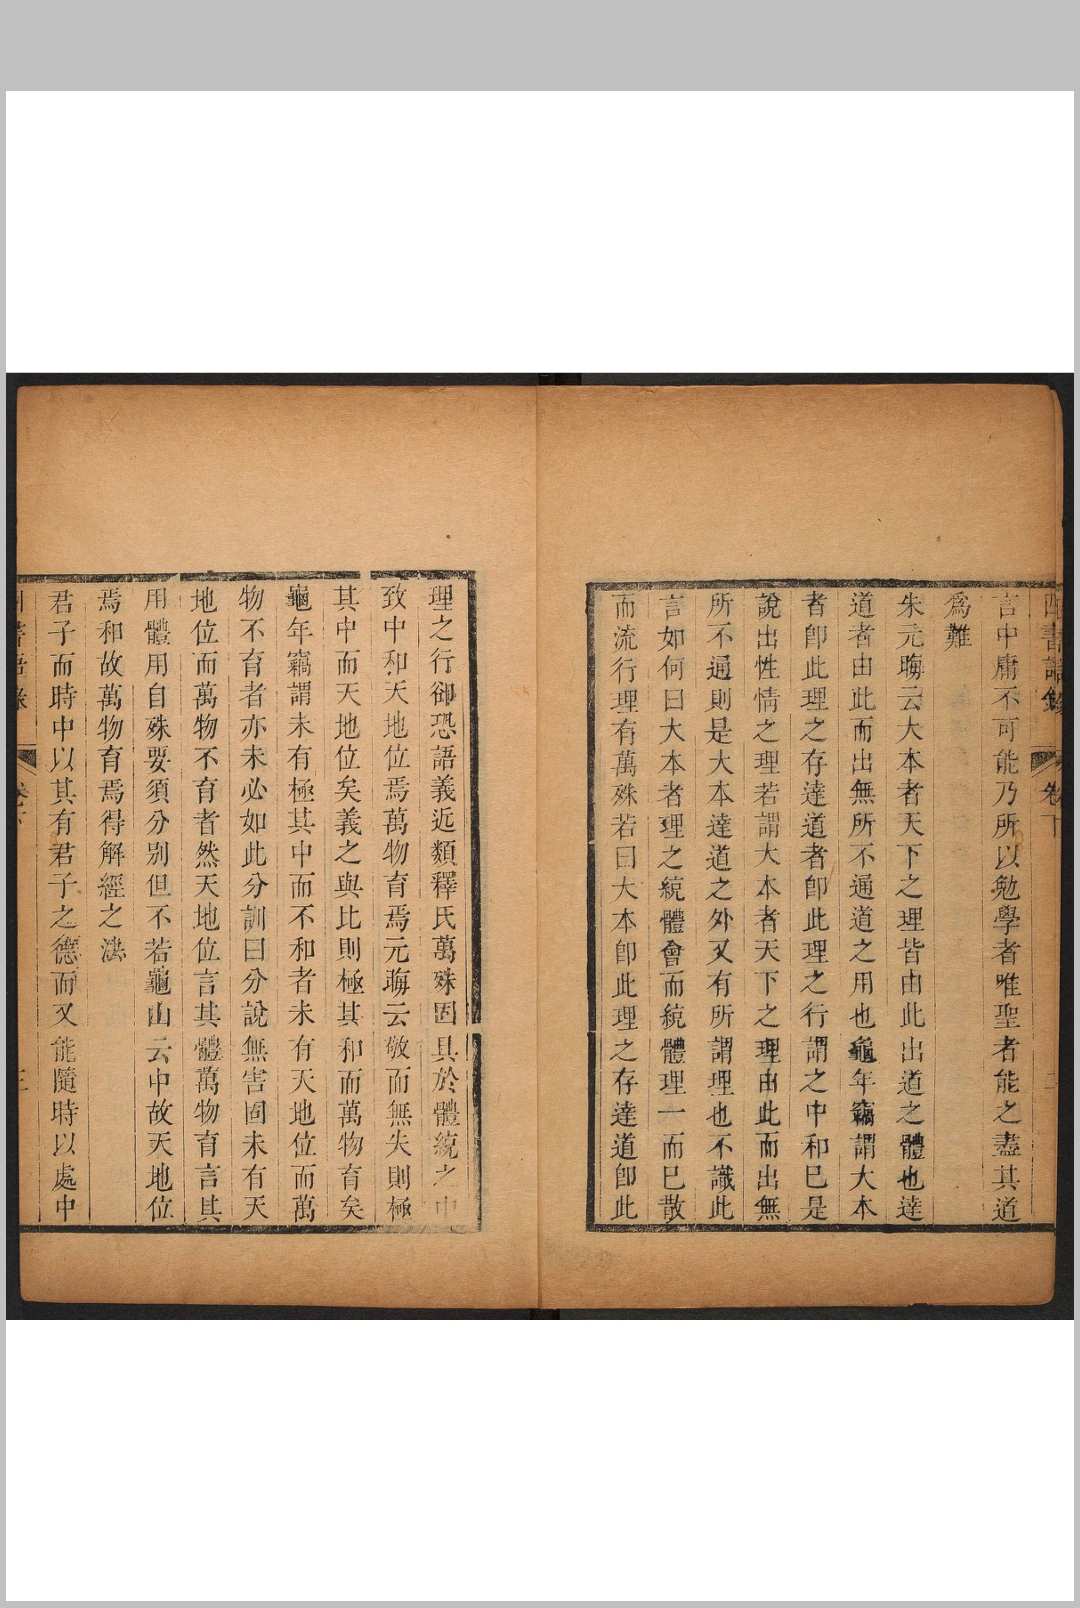 四書語錄 卷下 二
言中庸不可能乃所以勉學者唯聖者能之盡其道
爲難
朱元晦云大本者天下之理皆由此出道之體也達
道者由此而出無所不通道之用也龜年竊謂大本
者卽此理之存達道者卽此理之行謂之中和巳是
說出性情之理若謂大本者天下之理由此而出無
所不通則是大本達道之外又有所謂理也不識此
言如何曰大本者理之統體會而統體理一而巳散
而流行理有萬殊若曰大本卽此理之存達道卽此
理之行御恐語義近類釋氏萬殊固具於體統之中
致中和天地位焉萬物育焉元晦云敬而無失則極
其中而天地位矣義之與比則極其和而萬物育矣
龜年竊謂未有極其中而不和者未有天地位而萬
物不育者亦未必如此分訓曰分說無害固未有天
地位而萬物不育者然天地位言其體萬物育言其
用體用自殊要須分別但不若龜山云中故天地位
焉和故萬物育焉得解經之法
君子而時中以其有君子之德而又能隨時以處中